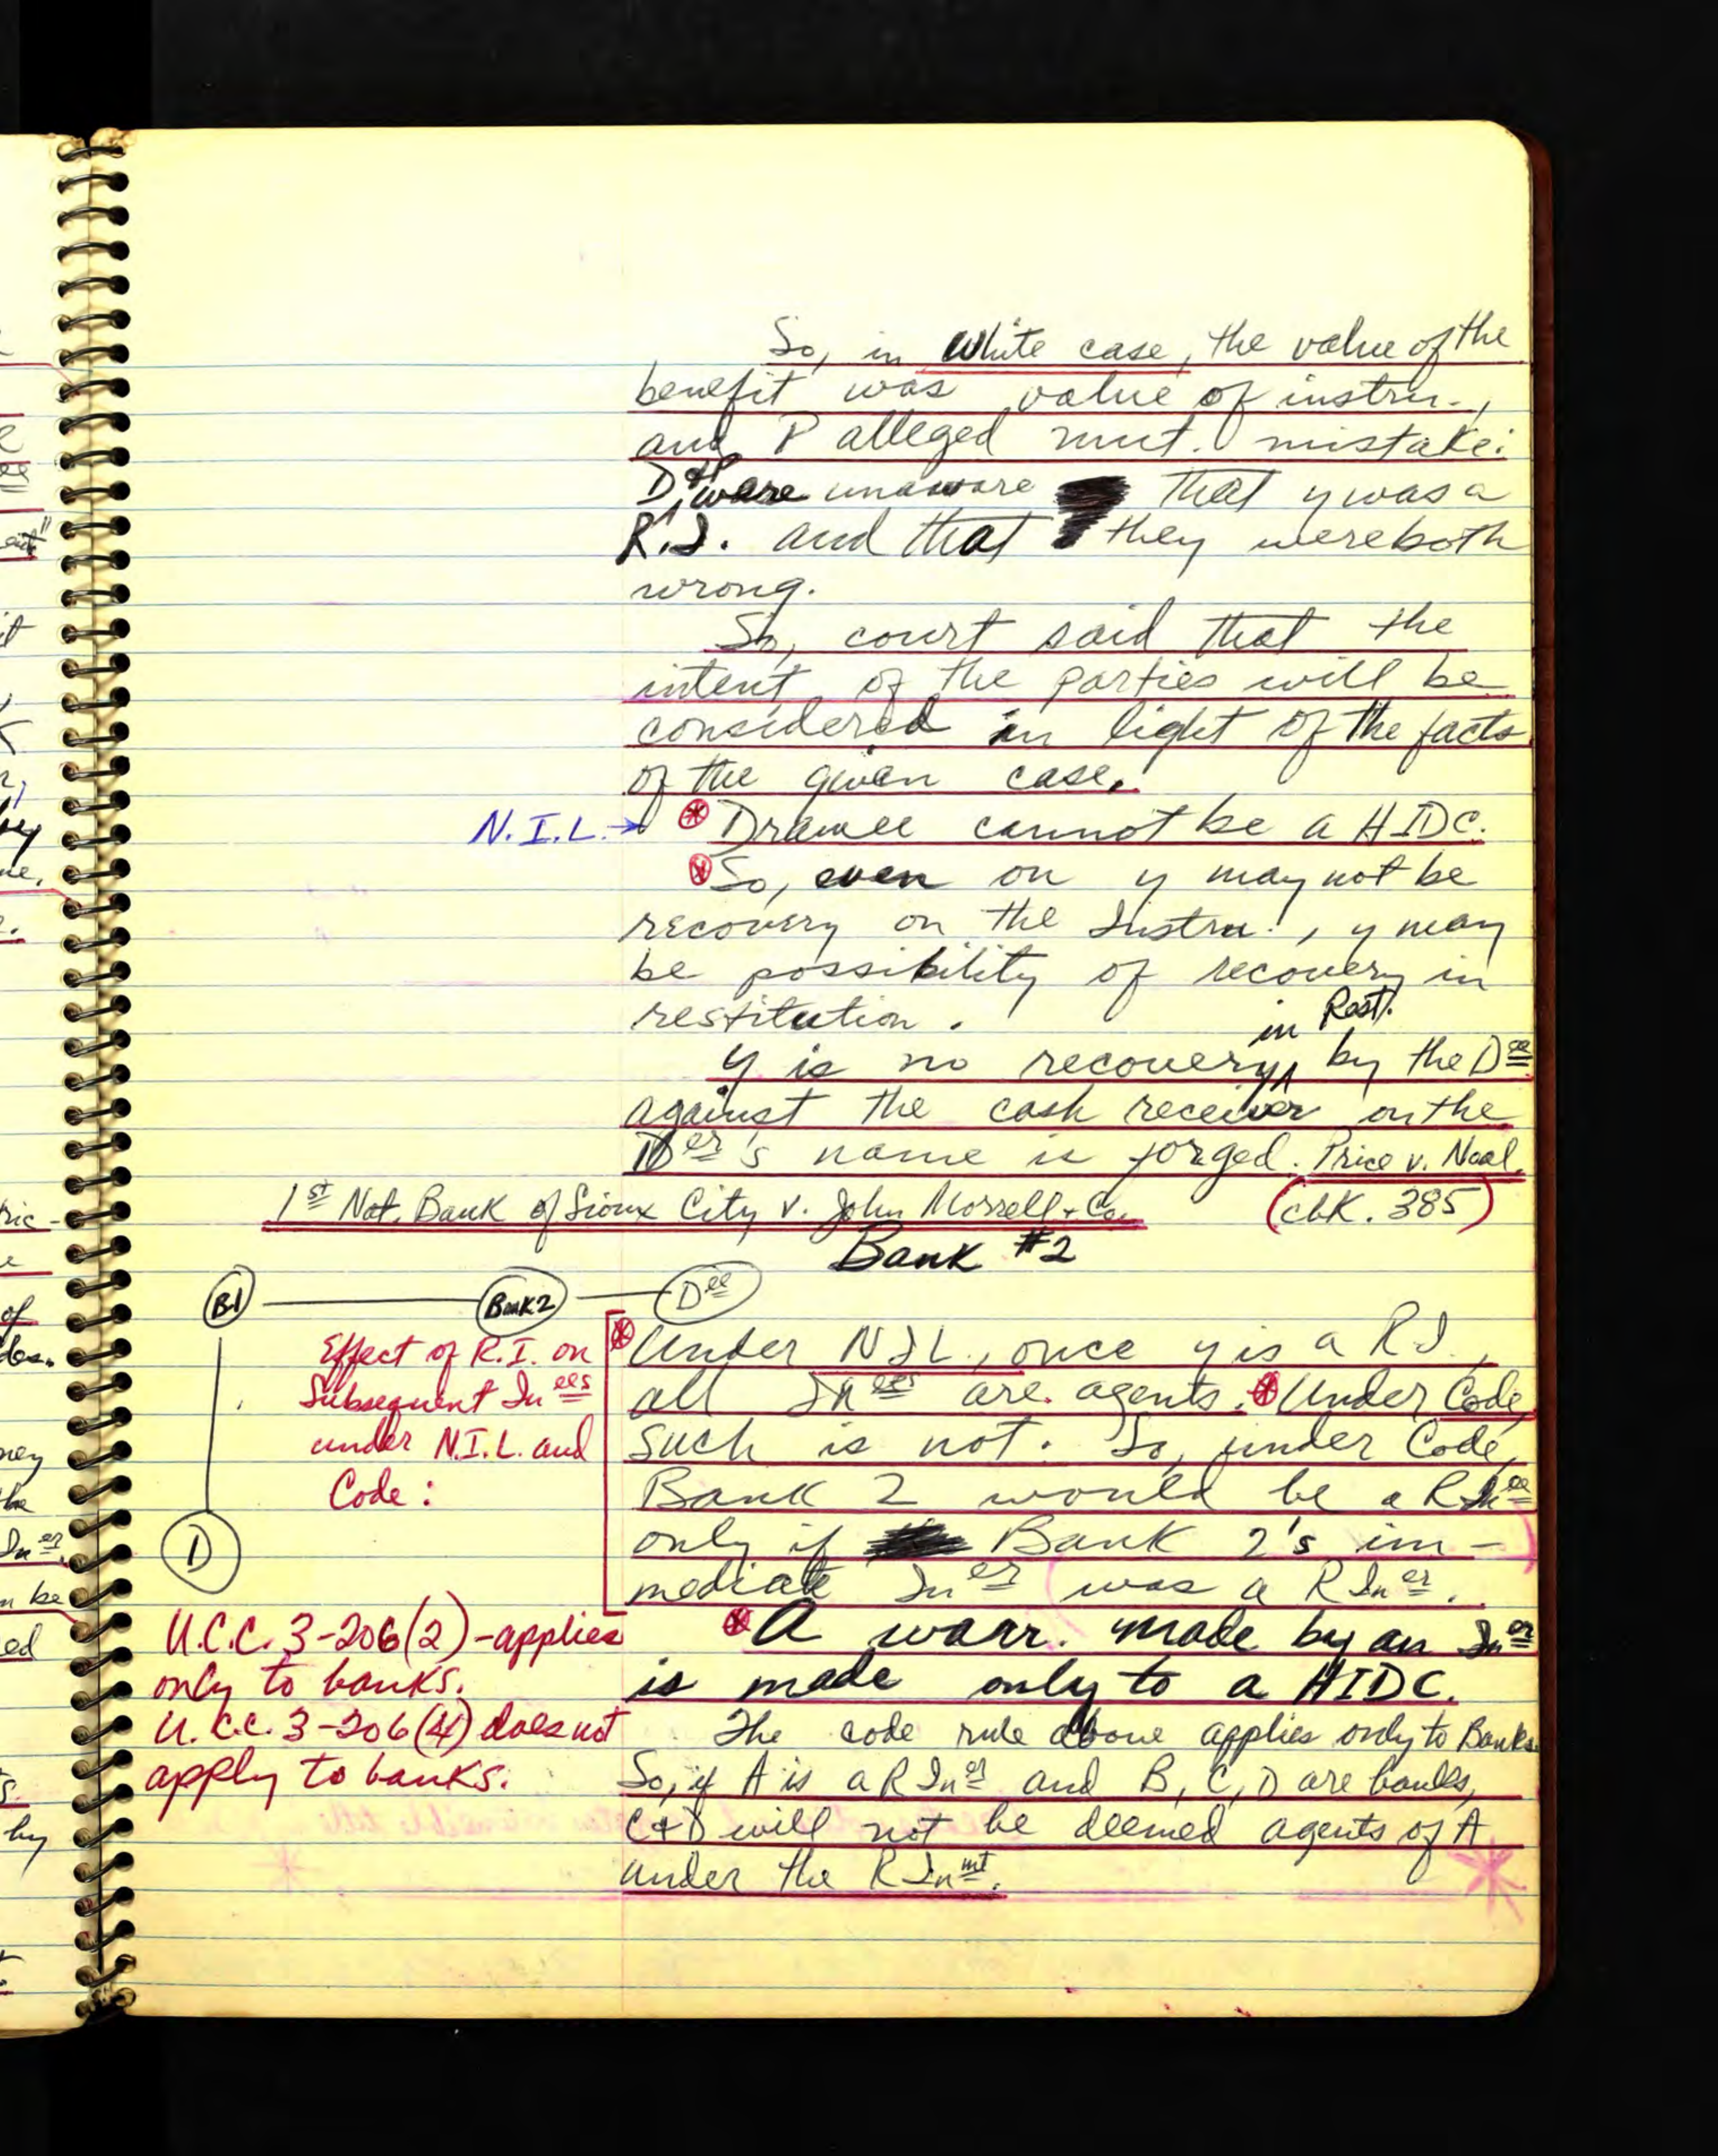 So, in White case, the value of the
benefit was value of instru.,
and P alleged mut. mistake:
D + P were unaware that y was a
R.I. and that they were both
wrong.
So, court said that the
intent of the parties will be
considered in light of the facts
of the given case.
N.I.L. → * Drawee cannot be a HIDC.
* So, even on y may not be
recovery on the Instru., y may
be possibility of recovery in
restitution.
in Rest.
y is no recovery ^ by the Dee
against the cash receiver on the
Der's name is forged. Price v. Neal.
1st Nat. Bank of Sioux City v. John Morrell + Co. (cbk. 385)
Bank #2
B1 Bank 2 Dee
D
Effect of R.I. on
Subsequent Inees
under N.I.L. and
Code:
* Under NIL, once y is a RI,
all Inees are agents. * Under Code,
such is not. So, under Code,
Bank 2 would be a RInee
only if Bank 2's im-
mediate Iner was a RIner.
U.C.C. 3-206(2) - applies
only to banks.
U.C.C. 3-206(4) does not
apply to banks.
* A warr. made by an Iner
is made only to a HIDC.
The code rule above applies only to Banks.
So, if A is a RIner and B, C, D are banks,
C + D will not be deemed agents of A
under the RInmt.